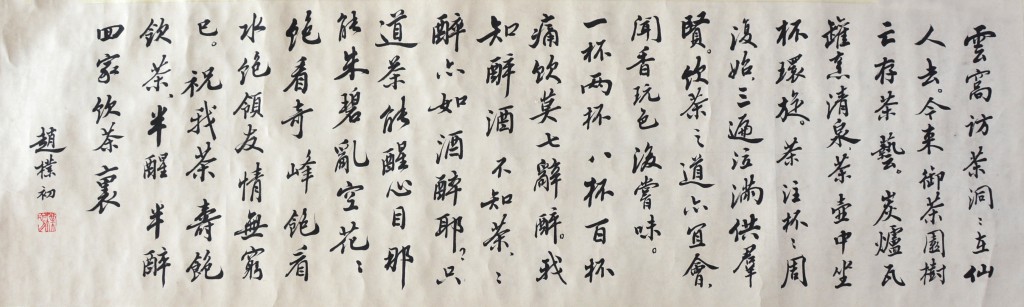 雲窩访茶洞〻在仙
人去。今来御茶園樹
亡存茶藝。炭爐瓦
罐烹清泉茶壺中坐
杯環旋。茶注杯〻周
復始三遍注满供羣
賢。饮茶之道亦宜會,
闻香玩色後嘗味。
一杯兩杯八杯百杯
痛饮莫七辭醉。我
知醉酒不知茶、〻
醉亦如酒醉耶？只
道茶能醒心目那
能朱碧亂空花〻
饱看奇峰饱看
水饱領友情無窮
已。祝我茶壽饱
饮茶、半醒半醉
回家饮茶裏
趙樸初